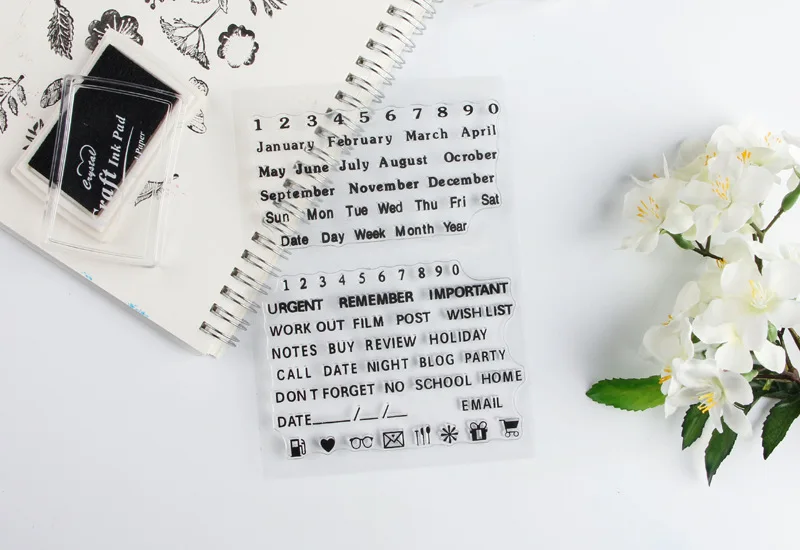 Crystal
Craft Ink Pad
Paper
1 2 3 4 5 6 7 8 9 0
January February March April
May June July August Octorber
September November December
Sun Mon Tue Wed Thu Fri Sat
Date Day Week Month Year
1 2 3 4 5 6 7 8 9 0
URGENT REMEMBER IMPORTANT
WORK OUT FILM POST WISH LIST
NOTES BUY REVIEW HOLIDAY
CALL DATE NIGHT BLOG PARTY
DON'T FORGET NO SCHOOL HOME
DATE____/__/__ EMAIL